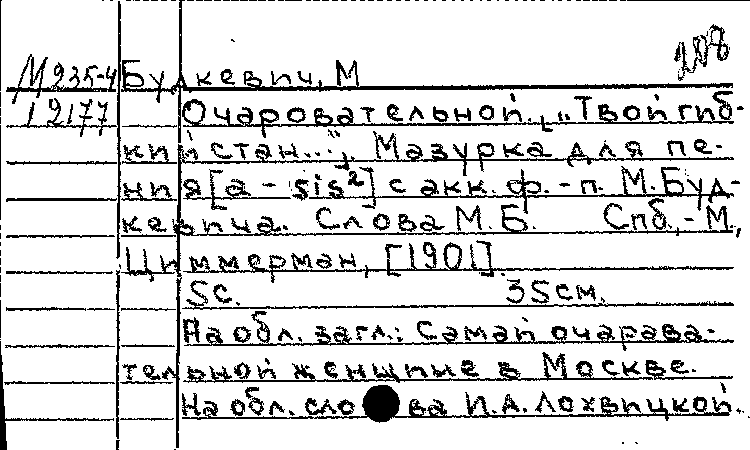 208
М 235-4 Будкевич, М
12177 Очаровательной. [„Твой гиб-
кий стан..."]. Мазурка для пе-
ния [a - sis²] с акк. ф.-п. М. Буд-
кевича. Слова М. Б. Спб.,-М.,
Циммерман, [1901].
5с. 35см.
На обл. загл.: Самай очарава-
тельной женщине в Москве.
На обл. слова И.А. Лохвицкой.